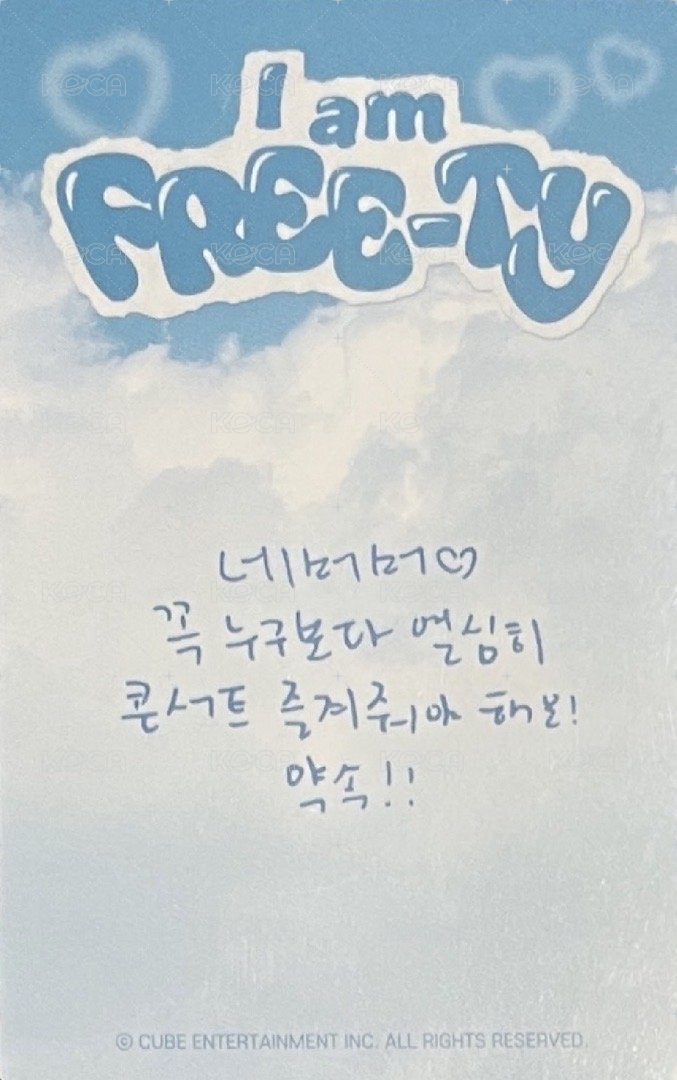 I am
FREE-TY
네버버♡
꼭 누구보다 열심히
콘서트 즐겨줘야 해요!
약속!!
© CUBE ENTERTAINMENT INC. ALL RIGHTS RESERVED.